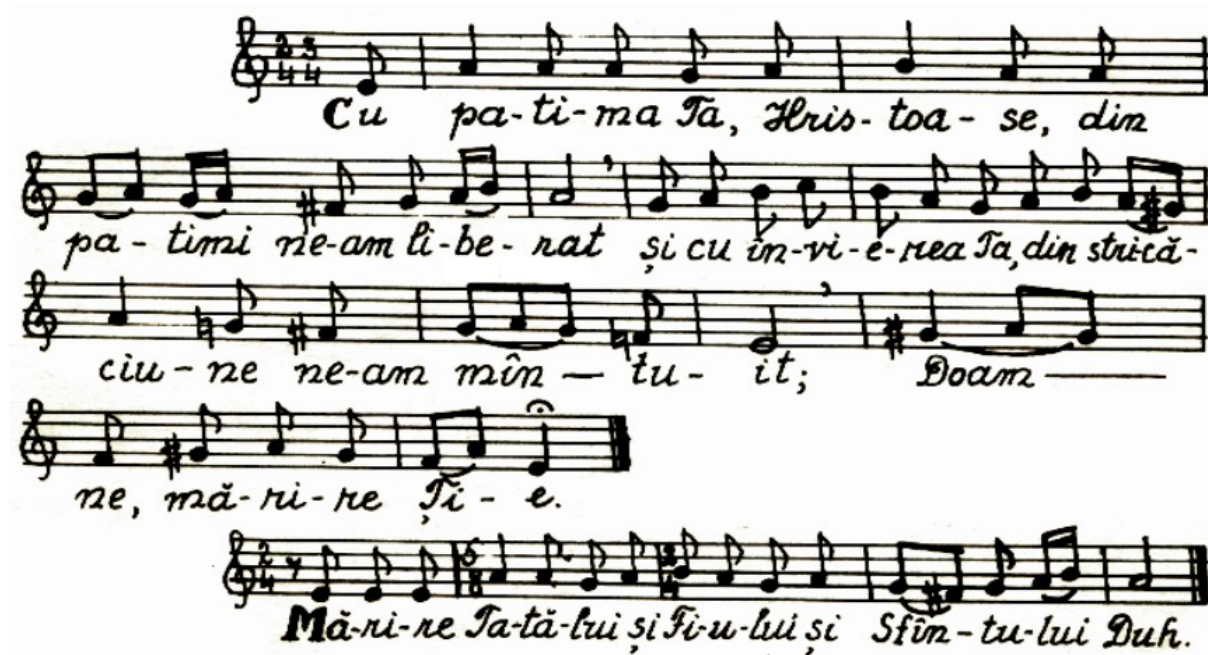 Cu pa-ti-ma Ta, Hris-toa-se, din
pa-timi ne-am li-be-rat și cu în-vi-e-rea Ta, din strică-
ciu-ne ne-am mîn-tu-it; Doam-
ne, mă-ri-re Ți-e.
Mă-ri-re Ta-tă-lui și Fi-u-lui și Sfîn-tu-lui Duh.